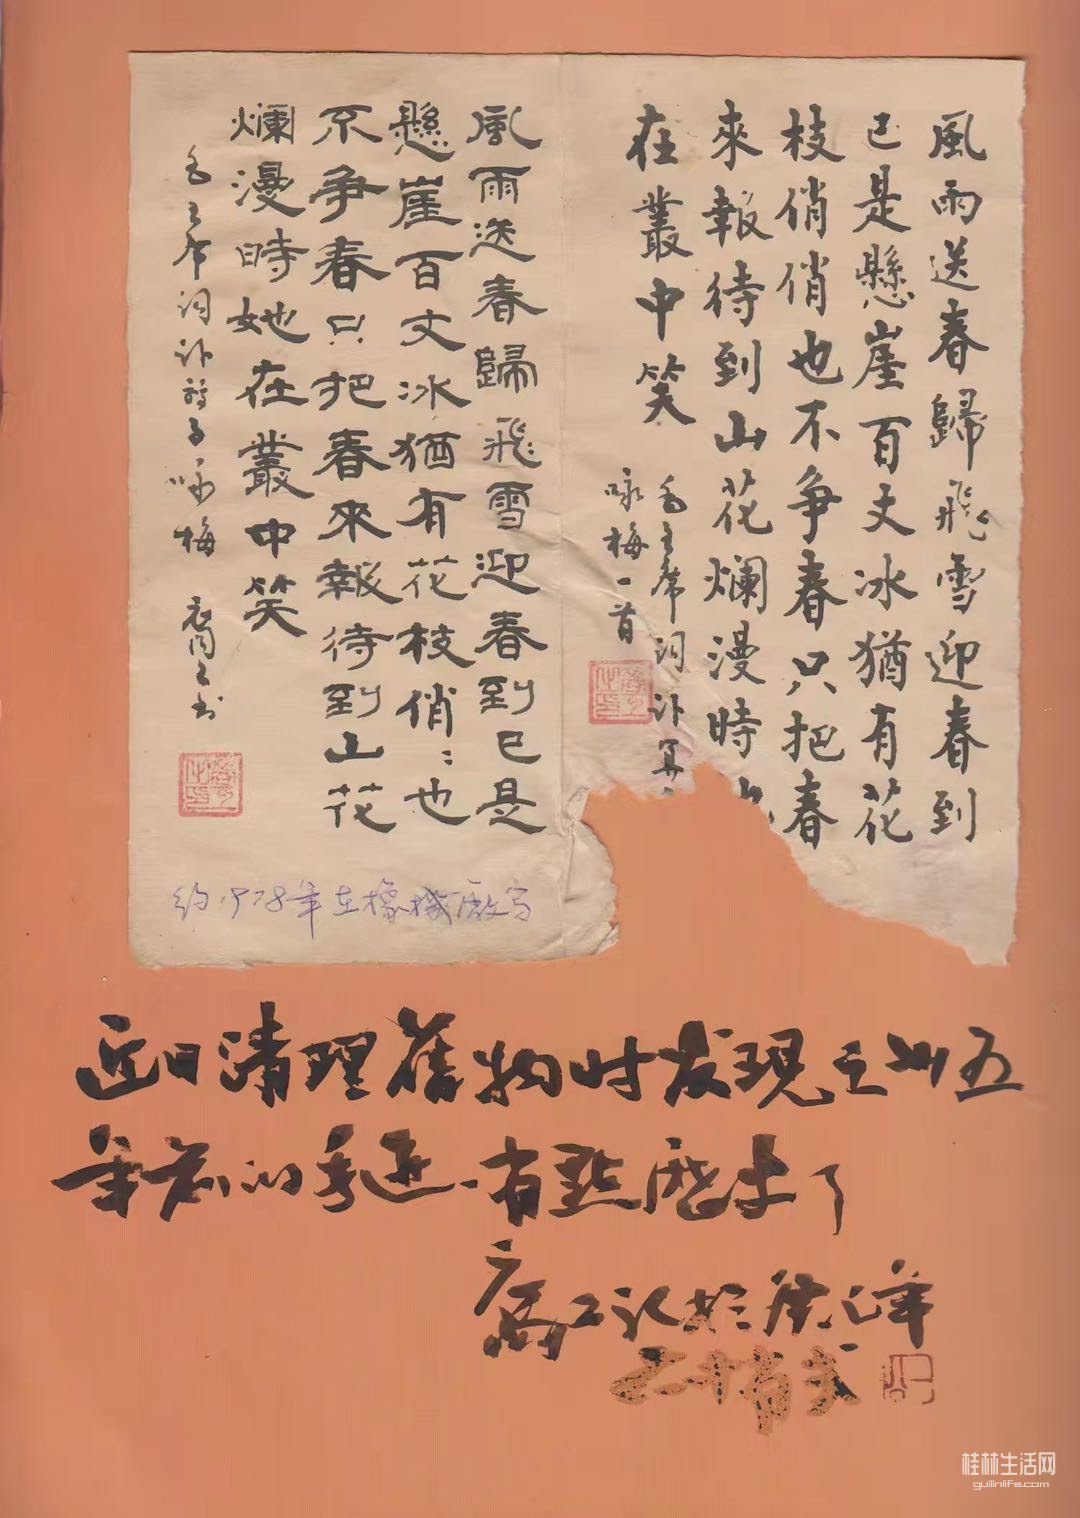 風雨送春歸飛雪迎春到
已是懸崖百丈冰猶有花
枝俏俏也不争春只把春
來報待到山花爛漫時
在叢中笑
毛主席词卜算
咏梅一首
風雨送春歸飛雪迎春到已是
懸崖百丈冰猶有花枝俏:也
不争春只把春來報待到山花
爛漫時她在叢中笑
毛主席词卜算子咏梅
约1978年在橡機廠写
近日清理舊物时发現之卅五
年前的手迹.有點历史了
桂林生活网
guilinlife.com